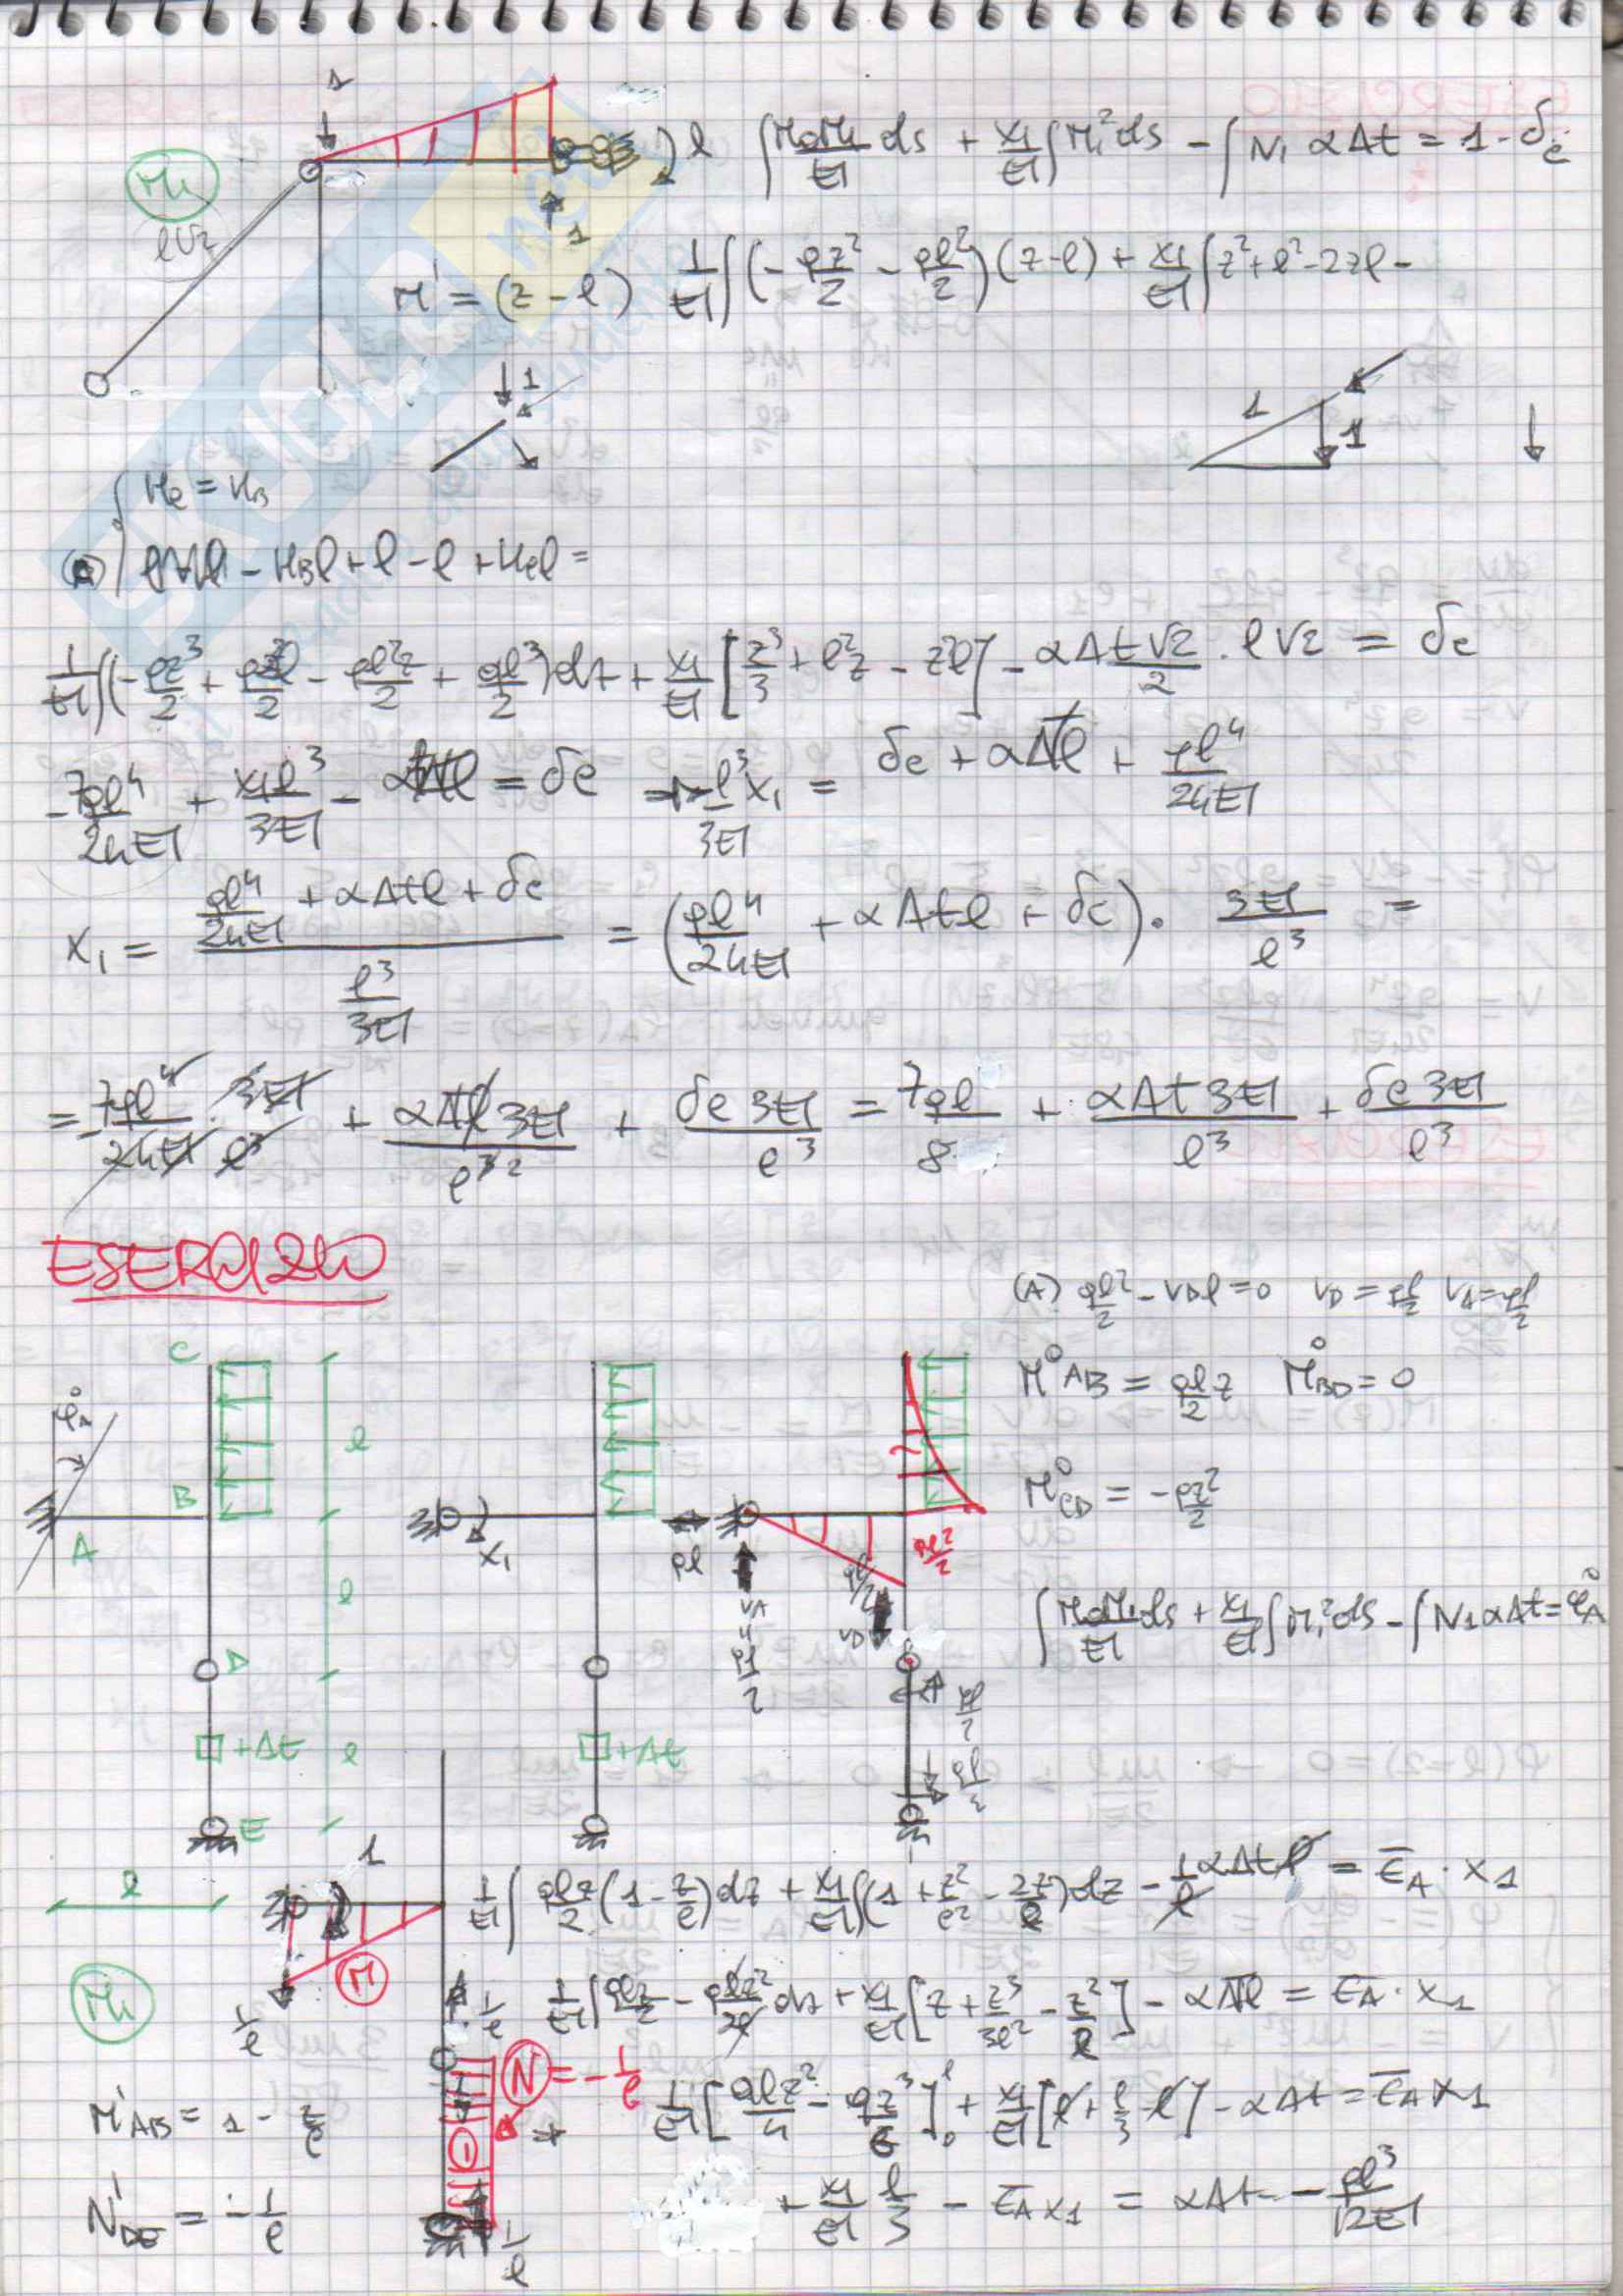 1
M₁
l√2
l ∫ M₀M₁/EI ds + x₁/EI ∫ M₁² ds - ∫ N₁ αΔt = 1·δc
1
M' = (z - l) 1/EI ∫ (-qz²/2 - ql²/2)(z-l) + x₁/EI ∫ z² + l² - 2zl -
1
1 1
Hc = HB
(A) - HBl + l - l + Hcl =
1/EI ∫ (-qz³/2 + qz²l/2 - ql²z/2 + ql³/2) dz + x₁/EI [z³/3 + l²z - z²l] - αΔt√2/2 · l√2 = δc
-7ql⁴/24EI + x₁l³/3EI - αΔtl = δc ⇒ l³/3EI x₁ = δc + αΔTl + ql⁴/24EI
x₁ = (ql⁴/24EI + αΔtl + δc) / (l³/3EI) = (ql⁴/24EI + αΔtl + δc) · 3EI/l³ =
= 7ql⁴/24EI · 3EI/l³ + αΔtl 3EI/l³ ² + δc 3EI/l³ = 7ql/8 + αΔt 3EI/l³ + δc 3EI/l³
ESERCIZIO
(A) ql²/2 - VDl = 0 VD = ql/2 VA = ql/2
C
φ°A
l
M°AB = ql/2 z M°BD = 0
B
M°CD = -qz²/2
A
x₁
ql
ql²/2
ql/2
l
VA
"
ql/2
VD
∫ M₀M₁/EI ds + x₁/EI ∫ M₁² ds - ∫ N₁ αΔt = φ°A
D
ql/2
+Δt l
+Δt
ql/2
E
l
1
1/EI ∫ qlz/2 (1 - z/l) dz + x₁/EI ∫ (1 + z²/l² - 2z/l) dz - 1/l αΔtl = c̄A · x₁
M
M₁
1/l
1/l
1/EI ∫ qlz/2 - qlz²/2l dz + x₁/EI [z + z³/3l² - z²/l] - αΔTl = c̄A · x₁
N = -1/l
M'AB = 1 - z/l
1/EI [qlz²/4 - qz³/6]₀ˡ + x₁/EI [l + l/3 - l] - αΔt = c̄A x₁
N'DE = -1/l
1/l
+ x₁/EI l/3 - c̄A x₁ = αΔt - ql³/12EI